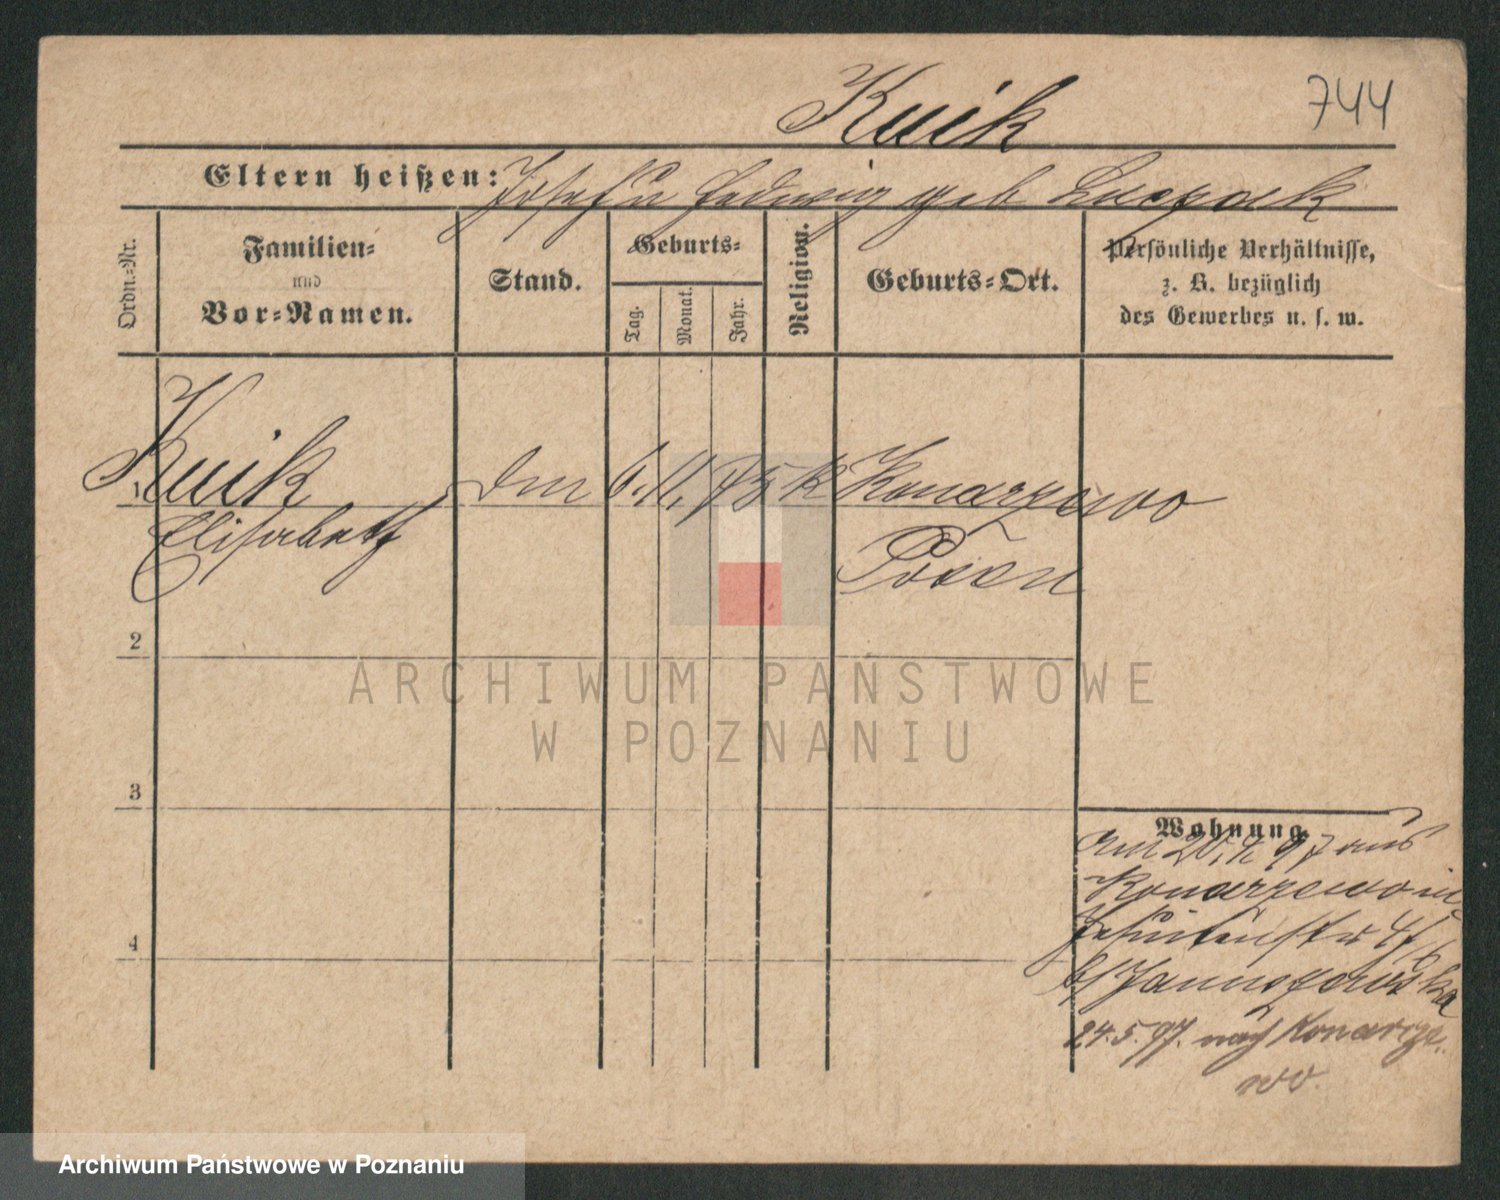 Kuik 744
Eltern heißen: Josef u Hedwig geb
Ordn.-Nr.
Familien-
und
Vor-Namen.
Stand.
Geburts-
Tag.
Monat.
Jahr.
Religion.
Geburts-Ort.
Persönliche Verhältnisse,
z. B. bezüglich
des Gewerbes u. s. w.
1 Kuik 6. 11. 75 k Konarzewo
Elisabeth Posen
2
3
4
Wohnung.
am 20. 4. 97 aus
Konarzewo in
24. 5. 97. nach Konarze-
wo.
ARCHIWUM PAŃSTWOWE
W POZNANIU
Archiwum Państwowe w Poznaniu